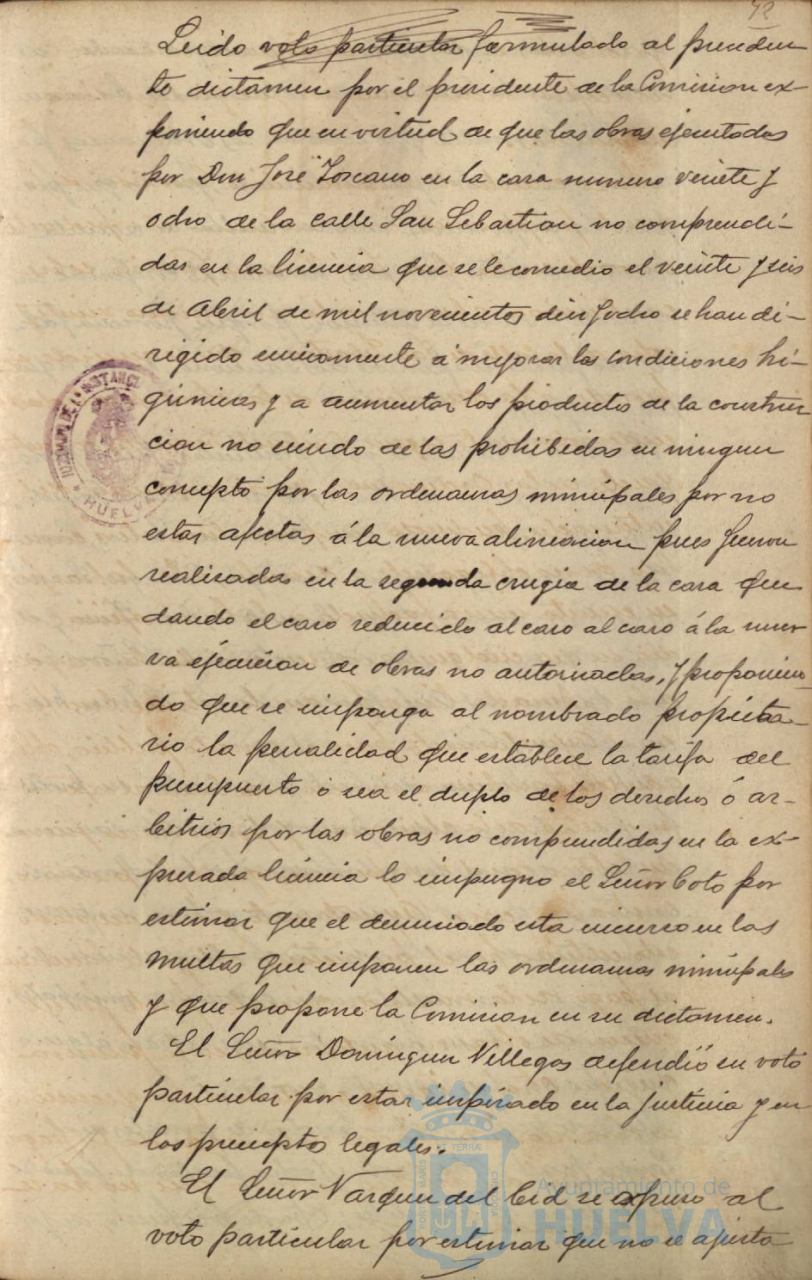 72
Leido voto particular formulado al preceden
te dictamen por el presidente de la Comision ex-
poniendo que en virtud de que las obras ejecutadas
por Don José Toscano en la casa numero veinte y
ocho de la calle San Sebastian no comprendi-
das en la licencia que se le concedio el veinte y seis
de Abril de mil novecientos diez y ocho se han di-
rigido unicamente á mejorar las condiciones hi-
giénicas y a aumentar los productos de la construc
cion no siendo de las prohibidas en ningun
concepto por las ordenanzas municipales por no
estar afectas á la nueva alineacion pues fueron
realizadas en la segunda crugia de la casa que
dando el caso reducido al caso al caso á la nue
va ejecucion de obras no autorizadas, y proponien
do que se imponga al nombrado propieta-
rio la penalidad que establece la tarifa del
presupuesto o sea el duplo de los derechos ó ar-
bitrios por las obras no comprendidas en la ex-
presada licencia lo impugno el Señor Coto por
estimar que el denunciado esta incurso en las
multas que imponen las ordenanzas municipales
y que propone la Comision en su dictamen.
El Señor Dominguez Villegas defendió su voto
particular por estar inspirado en la justicia y en
los preceptos legales.
El Señor Vazquez del Cid se opuso al
voto particular por estimar que no se ajusta
JUZGADO DE 1ª INSTANCIA
HUELVA
Ayuntamiento de
HUELVA